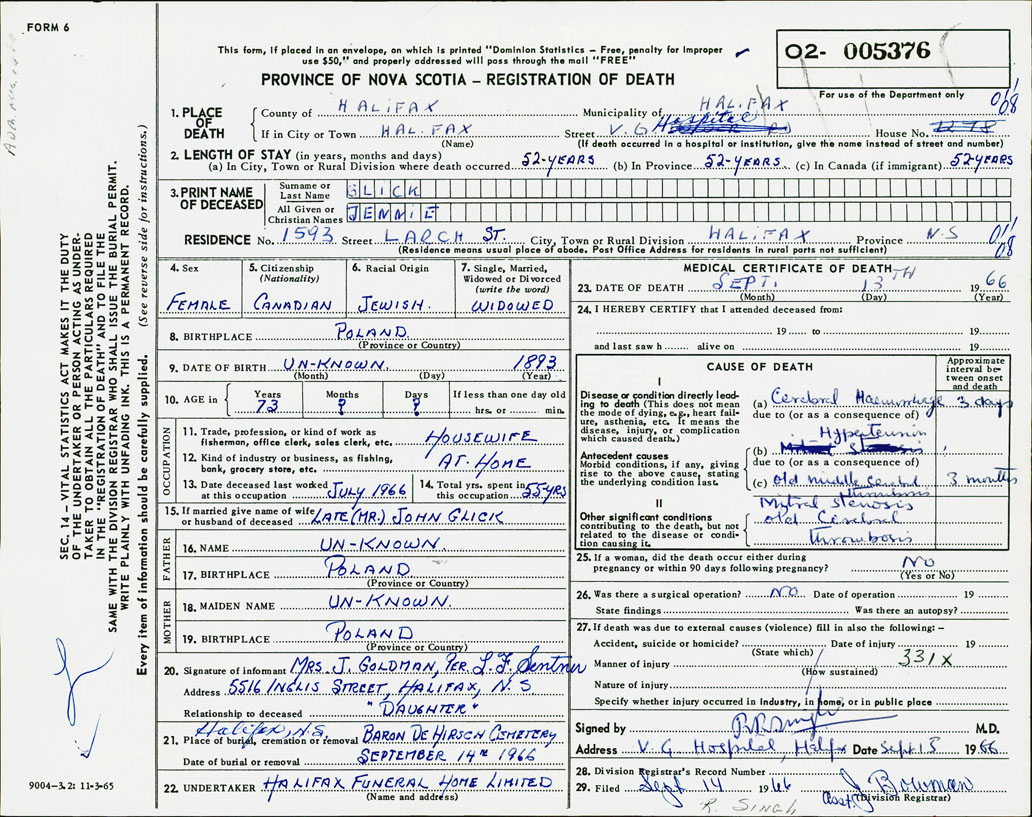 FORM 6
This form, if placed in an envelope, on which is printed "Dominion Statistics – Free, penalty for improper
use $50," and properly addressed will pass through the mail "FREE"
PROVINCE OF NOVA SCOTIA – REGISTRATION OF DEATH
02- 005376
For use of the Department only
011
08
1. PLACE OF DEATH
County of HALIFAX Municipality of HALIFAX
If in City or Town HALIFAX Street V.G Hospital House No.
(Name) (If death occurred in a hospital or institution, give the name instead of street and number)
2. LENGTH OF STAY (in years, months and days)
(a) In City, Town or Rural Division where death occurred 52-YEARS (b) In Province 52-YEARS (c) In Canada (if immigrant) 52-YEARS
3. PRINT NAME OF DECEASED
Surname or Last Name GLICK
All Given or Christian Names JENNIE
RESIDENCE No. 1593 Street LARCH ST. City, Town or Rural Division HALIFAX Province N.S
(Residence means usual place of abode. Post Office Address for residents in rural parts not sufficient)
011
08
4. Sex
FEMALE
5. Citizenship
(Nationality)
CANADIAN
6. Racial Origin
JEWISH.
7. Single, Married,
Widowed or Divorced
(write the word)
WIDOWED
8. BIRTHPLACE POLAND
(Province or Country)
9. DATE OF BIRTH UN-KNOWN. 1893
(Month) (Day) (Year)
10. AGE in Years 73 Months ? Days ? If less than one day old
hrs. or min.
OCCUPATION
11. Trade, profession, or kind of work as
fisherman, office clerk, sales clerk, etc. HOUSEWIFE
12. Kind of industry or business, as fishing,
bank, grocery store, etc. AT-HOME
13. Date deceased last worked
at this occupation JULY 1966
14. Total yrs. spent in
this occupation 55 YRS
15. If married give name of wife
or husband of deceased LATE (MR.) JOHN GLICK
FATHER
16. NAME UN-KNOWN.
17. BIRTHPLACE POLAND
(Province or Country)
MOTHER
18. MAIDEN NAME UN-KNOWN.
19. BIRTHPLACE POLAND
(Province or Country)
20. Signature of informant MRS. J. GOLDMAN, PER. L. F. Sentner
Address 5516 INGLIS STREET, HALIFAX, N.S
Relationship to deceased "DAUGHTER"
Halifax, N.S.
21. Place of burial, cremation or removal BARON DE HIRSCH CEMETERY
Date of burial or removal SEPTEMBER 14TH 1966
22. UNDERTAKER HALIFAX FUNERAL HOME LIMITED
(Name and address)
MEDICAL CERTIFICATE OF DEATH
23. DATE OF DEATH SEPT. 13TH 1966
(Month) (Day) (Year)
24. I HEREBY CERTIFY that I attended deceased from:
19 to 19
and last saw h alive on 19
CAUSE OF DEATH
Approximate
interval be-
tween onset
and death
I
Disease or condition directly lead-
ing to death (This does not mean
the mode of dying, e.g., heart fail-
ure, asthenia, etc. It means the
disease, injury, or complication
which caused death.)
(a) Cerebral Haemorrhage 3 days
due to (or as a consequence of)
Hypertension
Antecedent causes
Morbid conditions, if any, giving
rise to the above cause, stating
the underlying condition last.
(b) Mitral Stenosis
due to (or as a consequence of)
(c) old middle cerebral 3 months
thrombosis
II
Other significant conditions
contributing to the death, but not
related to the disease or condi-
tion causing it.
Mitral stenosis
old Cerebral
thrombosis
25. If a woman, did the death occur either during
pregnancy or within 90 days following pregnancy? NO
(Yes or No)
26. Was there a surgical operation? NO Date of operation 19
State findings Was there an autopsy?
27. If death was due to external causes (violence) fill in also the following:–
Accident, suicide or homicide? Date of injury 19
(State which)
Manner of injury 331X
(How sustained)
Nature of injury
Specify whether injury occurred in Industry, in home, or in public place
Signed by M.D.
Address V. G. Hospital, Halifax Date Sept 13 1966
28. Division Registrar's Record Number
29. Filed Sept 14 1966 J Bowman
asst. (Division Registrar)
R. SINGH
SEC. 14 – VITAL STATISTICS ACT MAKES IT THE DUTY
OF THE UNDERTAKER OR PERSON ACTING AS UNDER-
TAKER TO OBTAIN ALL THE PARTICULARS REQUIRED
IN THE "REGISTRATION OF DEATH" AND TO FILE THE
SAME WITH THE DIVISION REGISTRAR WHO SHALL ISSUE THE BURIAL PERMIT.
WRITE PLAINLY WITH UNFADING INK. THIS IS A PERMANENT RECORD.
Every item of information should be carefully supplied. (See reverse side for instructions.)
9004–3.2: 11-3-65